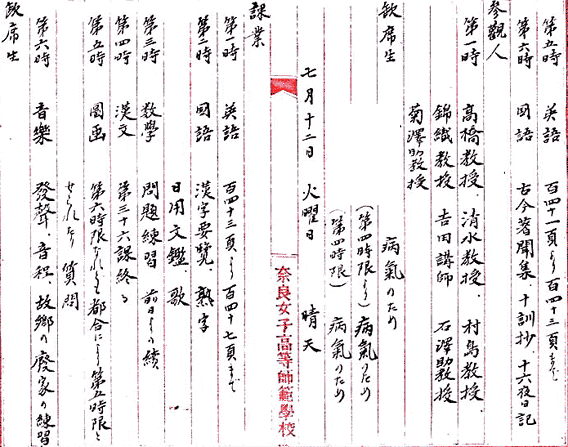 第五時 英語 百四十一頁より百四十三頁まで
第六時 國語 古今著聞集、十訓抄、十六夜日記
参觀人
第一時 高橋教授、清水教授、村島教授、
錦織教授 吉田講師 石澤助教授
菊澤助教授
欽席生 病氣のため
(第四時限より) 病氣のため
(第四時限) 病氣のため
七月十二日 火曜日 晴天
奈良女子高等師範學校
課業
第一時 英語 百四十三頁より百四十七頁まで
第二時 國語 漢字要覽、熟字
日用文鑑 歌
第三時 数學 問題練習 前日よりの續
第四時 漢文 第三十六課終る
第五時 圖画 第六時限なれども都合により第五時限と
せられたり 質問
第六時 音樂 發聲、音程、故郷の廢家の練習
欽席生